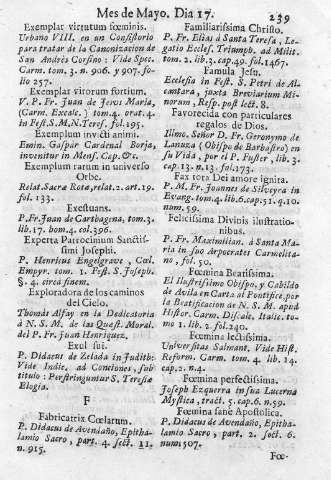 Mes de Mayo. Dia 17.
239
Exemplar virtutum fœminis.
Urbano VIII. en un Consistorio
para tratar de la Canonizacion de
San Andrès Corsino: Vide Spec.
Carm. tom. 3. n. 906. y 907. folio
257.
Exemplar virorum fortium.
V. P. Fr. Juan de Jesus Maria,
(Carm. Excalc.) tom. 4. orat. 4.
in Fest. S. M. N. Teres. fol. 195.
Exemplum invicti animi.
Emin. Gaspar Cardenal Borja,
inventur in Mens. Cap. &c.
Exemplum rarum in universo
Orbe.
Relat. Sacræ Rotæ, relat. 2. art. 19.
fol. 133.
Exestuans.
P. Fr. Juan de Carthagena, tom. 3.
lib. 17. hom. 4. col. 396.
Experta Patrocinium Sanctissimi
Josephi.
P. Henricus Engelgrave, Cœl.
Empyr. tom. 1. Fest. S. Joseph.
§. 4. circa finem.
Exploradora de los caminos
del Cielo.
Thomàs Alfay en la Dedicatoria
à N. S. M. de las Quest. Moral.
del P. Fr. Juan Henriquez.
Exul sui.
P. Didacus de Zelada in Judith:
Vide Indic. ad Conciones, subtitulo:
Perstringuntur S. Teresiæ
Elogia.
F
Fabricatrix Cœlarum.
P. Didacus de Avendaño, Epithalamio
Sacro, part. 4. sect. 11.
n. 915.
Familiarissima Christo.
P. Fr. Elias à Santa Teresa, Legatio
Eccles. Triumph. ad Milit.
tom. 2. lib. 3. cap. 49. fol. 1467.
Famula Jesu.
Ecclesia in Fest. S. Petri de Alcantara,
juxta Breviarium Minorum,
Resp. post lect. 8.
Favorecida con particulares
regalos de Dios.
Illmo. Señor D. Fr. Geronymo de
Lanuza (Obispo de Barbastro) en
su Vida, por el P. Fuser, lib. 3.
cap. 13. n. 13. fol. 173.
Fax tota Dei amore ignita.
P. M. Fr. Joannes de Silveyra in
Evang. tom. 4. lib. 6. cap. 51. q. 10.
num. 59.
Felicissima Divinis illustrationibus.
P. Fr. Maximilian. à Santa Maria
in suo Aerpocrates Carmelitano,
fol. 50.
Fœmina Beatissima.
El Ilustrissimo Obispo, y Cabildo
de Avila en Carta al Pontifice, por
la Beatificacion de N. S. M. apud
Histor. Carm. Discalc. Italic. tomo
1. lib. 2. fol. 240.
Fœmina lectissima.
Universitas Salmant. Vide Hist.
Reform. Carm. tom. 4. lib. 14.
cap. 2. n. 4.
Fœmina perfectissima.
Joseph Ezquerra in sua Lucerna
Mystica, tract. 5. cap. 6. n. 59.
Fœmina sanè Apostolica.
P. Didacus de Avendaño, Epithalamio
Sacro, part. 2. sect. 6.
num. 507.
Fœ-